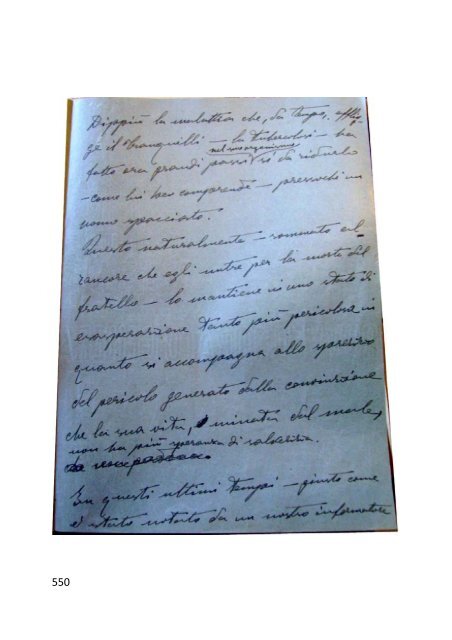 Dippiù la malattia che, da tempo, afflig-
ge il Tranquilli – la tubercolosi – ha
nel suo organismo
fatto ora grandi passi sì da ridurlo
– come lui ben comprende – pressochè un
uomo spacciato.
Questo naturalmente – sommato al
rancore che egli nutre per la morte del
fratello – lo mantiene in uno stato di
esasperazione tanto più pericolosa in
quanto si accompagna allo sprezzo
del pericolo generato dalla convinzione
che la sua vita, minata dal male,
non ha più speranza di salvezza.
In questi ultimi tempi – giusto come
è stato notato da un nostro informatore
550